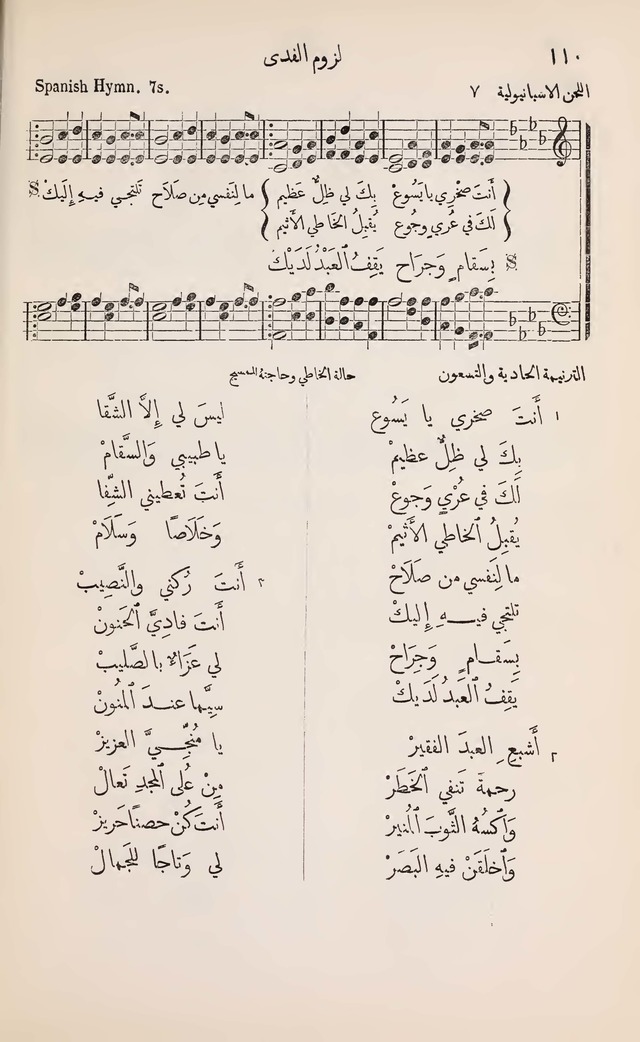 ١١٠
لزوم الفدى
اللحن الاسبانيولية ٧
Spanish Hymn. 7s.
أَنتَ صَخْرِي يَا يَسُوعْ بِكَ لي ظِلٌّ عَظِيم مَا لِنَفْسي مِن صَلَاح تَلْتَجِي فيهِ إِلَيكْ
لَكَ في عُريٍ وجُوع يُقبِلُ الخَاطي الأَثيم
بِسَقَامٍ وَجِرَاح يَقِفُ ٱلعَبْدُ لَدَيكْ
الترنيمة الحادية والتسعون
حالة الخاطي وحاجته للمسيح
١ أَنتَ صخري يا يَسُوع
بِكَ لي ظِلٌّ عظيمْ
لَكَ في عُرْيٍ وَجوعْ
يُقبِلُ ٱلخاطي الأَثيمْ
ما لِنَفسي من صَلَاحْ
تلتجي فيهِ إِليكْ
بِسَقامٍ وَجِرَاحْ
يَقِفُ ٱلعَبدُ لَدَيكْ
٢ أَشبعِ العبدَ الفقيرْ
رحمةً تَنفي ٱلخَطَرْ
وَٱكسُهُ الثَّوبَ ٱلمُنيرْ
وَٱخلُقَنْ فيهِ البَصَرْ
ليسَ لي إِلاَّ الشَّقا
يا طبيبي وَالسَّقامْ
أَنتَ تُعطيني الشِّفا
وَخَلَاصًا وَسَلَامْ
٣ أَنتَ رُكني والنَّصِيبْ
أَنتَ فادِيَّ ٱلحَنونْ
لي عَزَاءٌ بالصَّليبْ
سِيَّما عندَ ٱلمَنُونْ
يا مُنَجِّيَّ العزيزْ
مِنْ عُلَى ٱلمجدِ تَعالْ
أَنتَ كُنْ حصنًا حَريزْ
لي وَتاجًا لِلجَمالْ